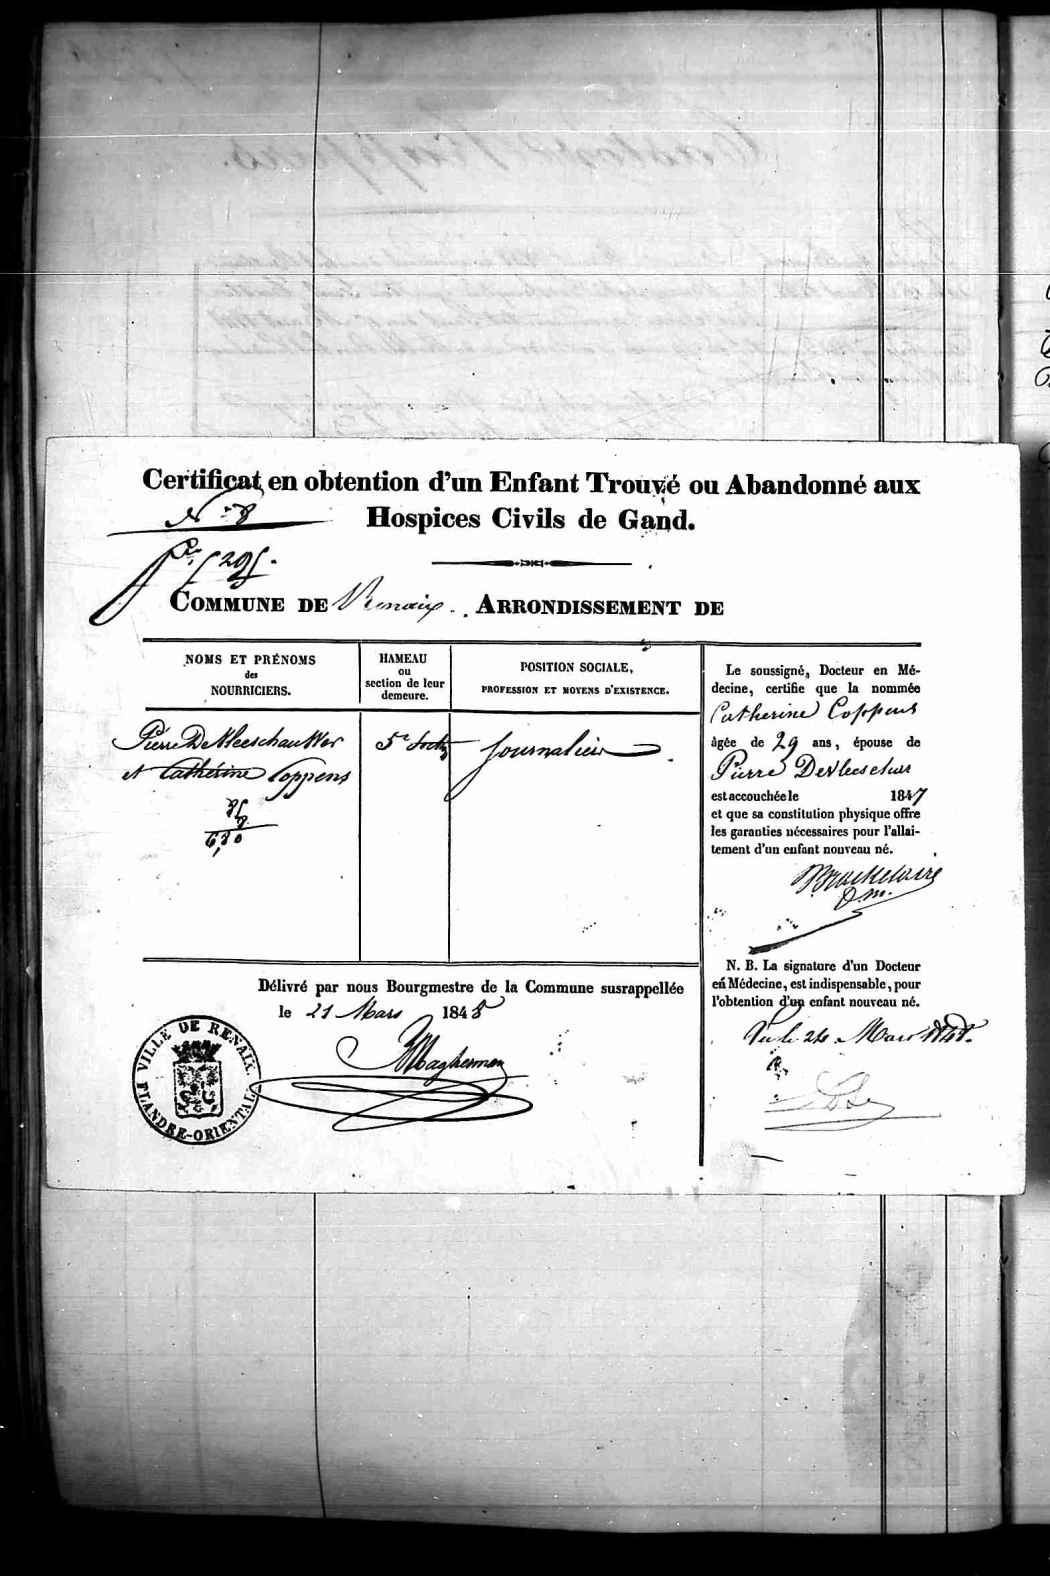 Certificat en obtention d'un Enfant Trouvé ou Abandonné aux
Hospices Civils de Gand.
N° 8
COMMUNE DE Renaix. ARRONDISSEMENT DE
NOMS ET PRÉNOMS
des
NOURRICIERS.
HAMEAU
ou
section de leur
demeure.
POSITION SOCIALE,
PROFESSION ET MOYENS D'EXISTENCE.
Pierre DeVleeschauwer
et Cathérine Coppens
5e Sectn
Journalier
8
6,80
Le soussigné, Docteur en Mé-
decine, certifie que la nommée
Catherine Coppens
âgée de 29 ans, épouse de
Pierre DeVleeschur
est accouchée le 1847
et que sa constitution physique offre
les garanties nécessaires pour l'allai-
tement d'un enfant nouveau né.
D.m.
N. B. La signature d'un Docteur
en Médecine, est indispensable, pour
l'obtention d'un enfant nouveau né.
Vu le 24 Mars 1848.
Délivré par nous Bourgmestre de la Commune susrappellée
le 21 Mars 1848
Magherman
VILLE DE RENAIX.
FLANDRE-ORIENTALE